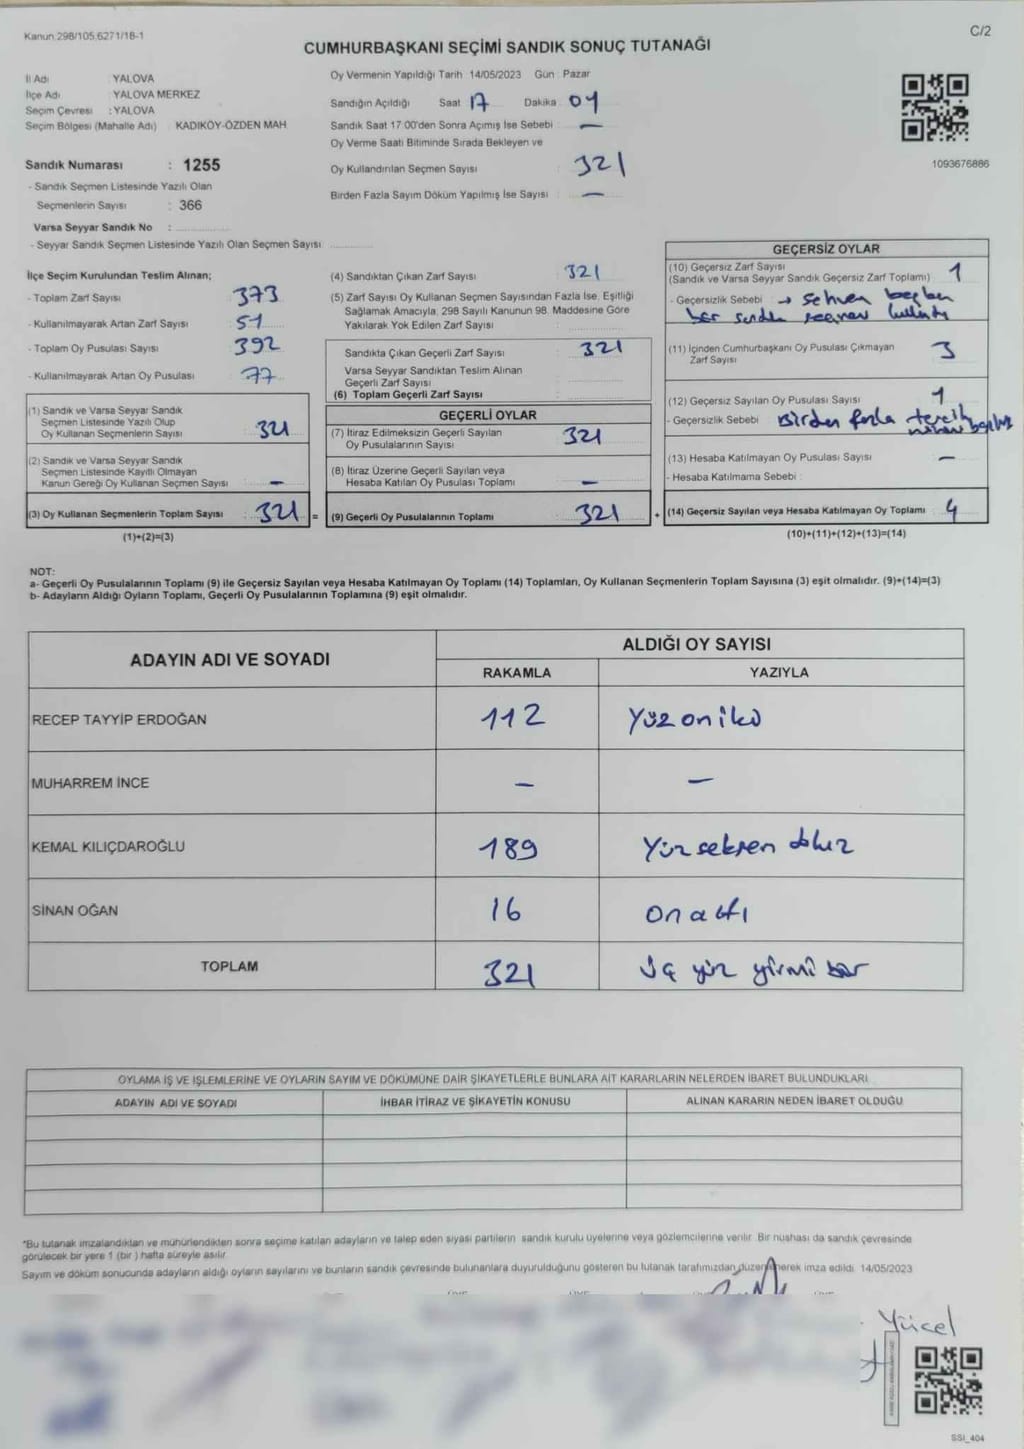 Kanun 298/105,6271/18-1
C/2
CUMHURBAŞKANI SEÇİMİ SANDIK SONUÇ TUTANAĞI
İl Adı : YALOVA
İlçe Adı : YALOVA MERKEZ
Seçim Çevresi : YALOVA
Seçim Bölgesi (Mahalle Adı) : KADIKÖY-ÖZDEN MAH
Sandık Numarası : 1255
- Sandık Seçmen Listesinde Yazılı Olan
Seçmenlerin Sayısı : 366
Varsa Seyyar Sandık No :
- Seyyar Sandık Seçmen Listesinde Yazılı Olan Seçmen Sayısı :
Oy Vermenin Yapıldığı Tarih 14/05/2023 Gün : Pazar
Sandığın Açıldığı Saat 17 Dakika 04
Sandık Saat 17:00'den Sonra Açımış İse Sebebi : —
Oy Verme Saati Bitiminde Sırada Bekleyen ve
Oy Kullandırılan Seçmen Sayısı : 321
Birden Fazla Sayım Döküm Yapılmış İse Sayısı : —
1093676886
İlçe Seçim Kurulundan Teslim Alınan;
- Toplam Zarf Sayısı : 373
- Kullanılmayarak Artan Zarf Sayısı : 51
- Toplam Oy Pusulası Sayısı : 392
- Kullanılmayarak Artan Oy Pusulası : 77
(1) Sandık ve Varsa Seyyar Sandık
Seçmen Listesinde Yazılı Olup
Oy Kullanan Seçmenlerin Sayısı : 321
(2) Sandık ve Varsa Seyyar Sandık
Seçmen Listesinde Kayıtlı Olmayan
Kanun Gereği Oy Kullanan Seçmen Sayısı : —
(3) Oy Kullanan Seçmenlerin Toplam Sayısı : 321 =
(1)+(2)=(3)
(4) Sandıktan Çıkan Zarf Sayısı : 321
(5) Zarf Sayısı Oy Kullanan Seçmen Sayısından Fazla İse, Eşitliği
Sağlamak Amacıyla, 298 Sayılı Kanunun 98. Maddesine Göre
Yakılarak Yok Edilen Zarf Sayısı :
Sandıkta Çıkan Geçerli Zarf Sayısı : 321
Varsa Seyyar Sandıktan Teslim Alınan
Geçerli Zarf Sayısı :
(6) Toplam Geçerli Zarf Sayısı :
GEÇERLİ OYLAR
(7) İtiraz Edilmeksizin Geçerli Sayılan
Oy Pusulalarının Sayısı : 321
(8) İtiraz Üzerine Geçerli Sayılan veya
Hesaba Katılan Oy Pusulası Toplamı : —
(9) Geçerli Oy Pusulalarının Toplamı : 321 +
GEÇERSİZ OYLAR
(10) Geçersiz Zarf Sayısı
(Sandık ve Varsa Seyyar Sandık Geçersiz Zarf Toplamı) : 1
- Geçersizlik Sebebi : → Sehven
bir
(11) İçinden Cumhurbaşkanı Oy Pusulası Çıkmayan
Zarf Sayısı : 3
(12) Geçersiz Sayılan Oy Pusulası Sayısı : 1
- Geçersizlik Sebebi : Birden fazla tercih
(13) Hesaba Katılmayan Oy Pusulası Sayısı : —
- Hesaba Katılmama Sebebi :
(14) Geçersiz Sayılan veya Hesaba Katılmayan Oy Toplamı : 4
(10)+(11)+(12)+(13)=(14)
NOT:
a- Geçerli Oy Pusulalarının Toplamı (9) ile Geçersiz Sayılan veya Hesaba Katılmayan Oy Toplamı (14) Toplamları, Oy Kullanan Seçmenlerin Toplam Sayısına (3) eşit olmalıdır. (9)+(14)=(3)
b- Adayların Aldığı Oyların Toplamı, Geçerli Oy Pusulalarının Toplamına (9) eşit olmalıdır.
ADAYIN ADI VE SOYADI
ALDIĞI OY SAYISI
RAKAMLA YAZIYLA
RECEP TAYYİP ERDOĞAN 112 Yüzoniki
MUHARREM İNCE — —
KEMAL KILIÇDAROĞLU 189 Yüz seksen dokuz
SİNAN OĞAN 16 on altı
TOPLAM 321 Üç yüz yirmi bir
OYLAMA İŞ VE İŞLEMLERİNE VE OYLARIN SAYIM VE DÖKÜMÜNE DAİR ŞİKAYETLERLE BUNLARA AİT KARARLARIN NELERDEN İBARET BULUNDUKLARI
ADAYIN ADI VE SOYADI İHBAR İTİRAZ VE ŞİKAYETİN KONUSU ALINAN KARARIN NEDEN İBARET OLDUĞU
*Bu tutanak imzalandıktan ve mühürlendikten sonra seçime katılan adayların ve talep eden siyasi partilerin sandık kurulu üyelerine veya gözlemcilerine verilir. Bir nüshası da sandık çevresinde
görülecek bir yere 1 (bir) hafta süreyle asılır.
Sayım ve döküm sonucunda adayların aldığı oyların sayılarını ve bunların sandık çevresinde bulunanlara duyurulduğunu gösteren bu tutanak tarafımızdan düzenlenerek imza edildi. 14/05/2023
Yücel
SSI_404